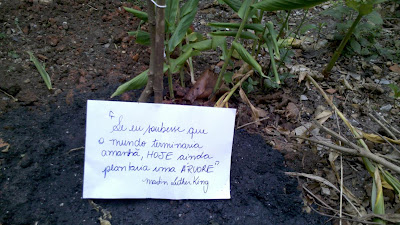 "Se eu soubesse que
o mundo terminaria
amanhã, HOJE ainda
plantaria uma ÁRVORE"
- Martin Luther King